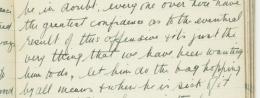 be in doubt. every one over here have
the greatest confidence as to the eventual
result of this offensive & it's just the
very thing that we have been wanting
him to do, let him do the bag hopping
by all means & when he is sick of it